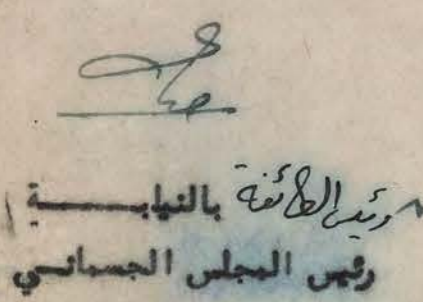 رئيس الطائفة بالنيابــــــة
رئيس المجلس الجسمانـــي